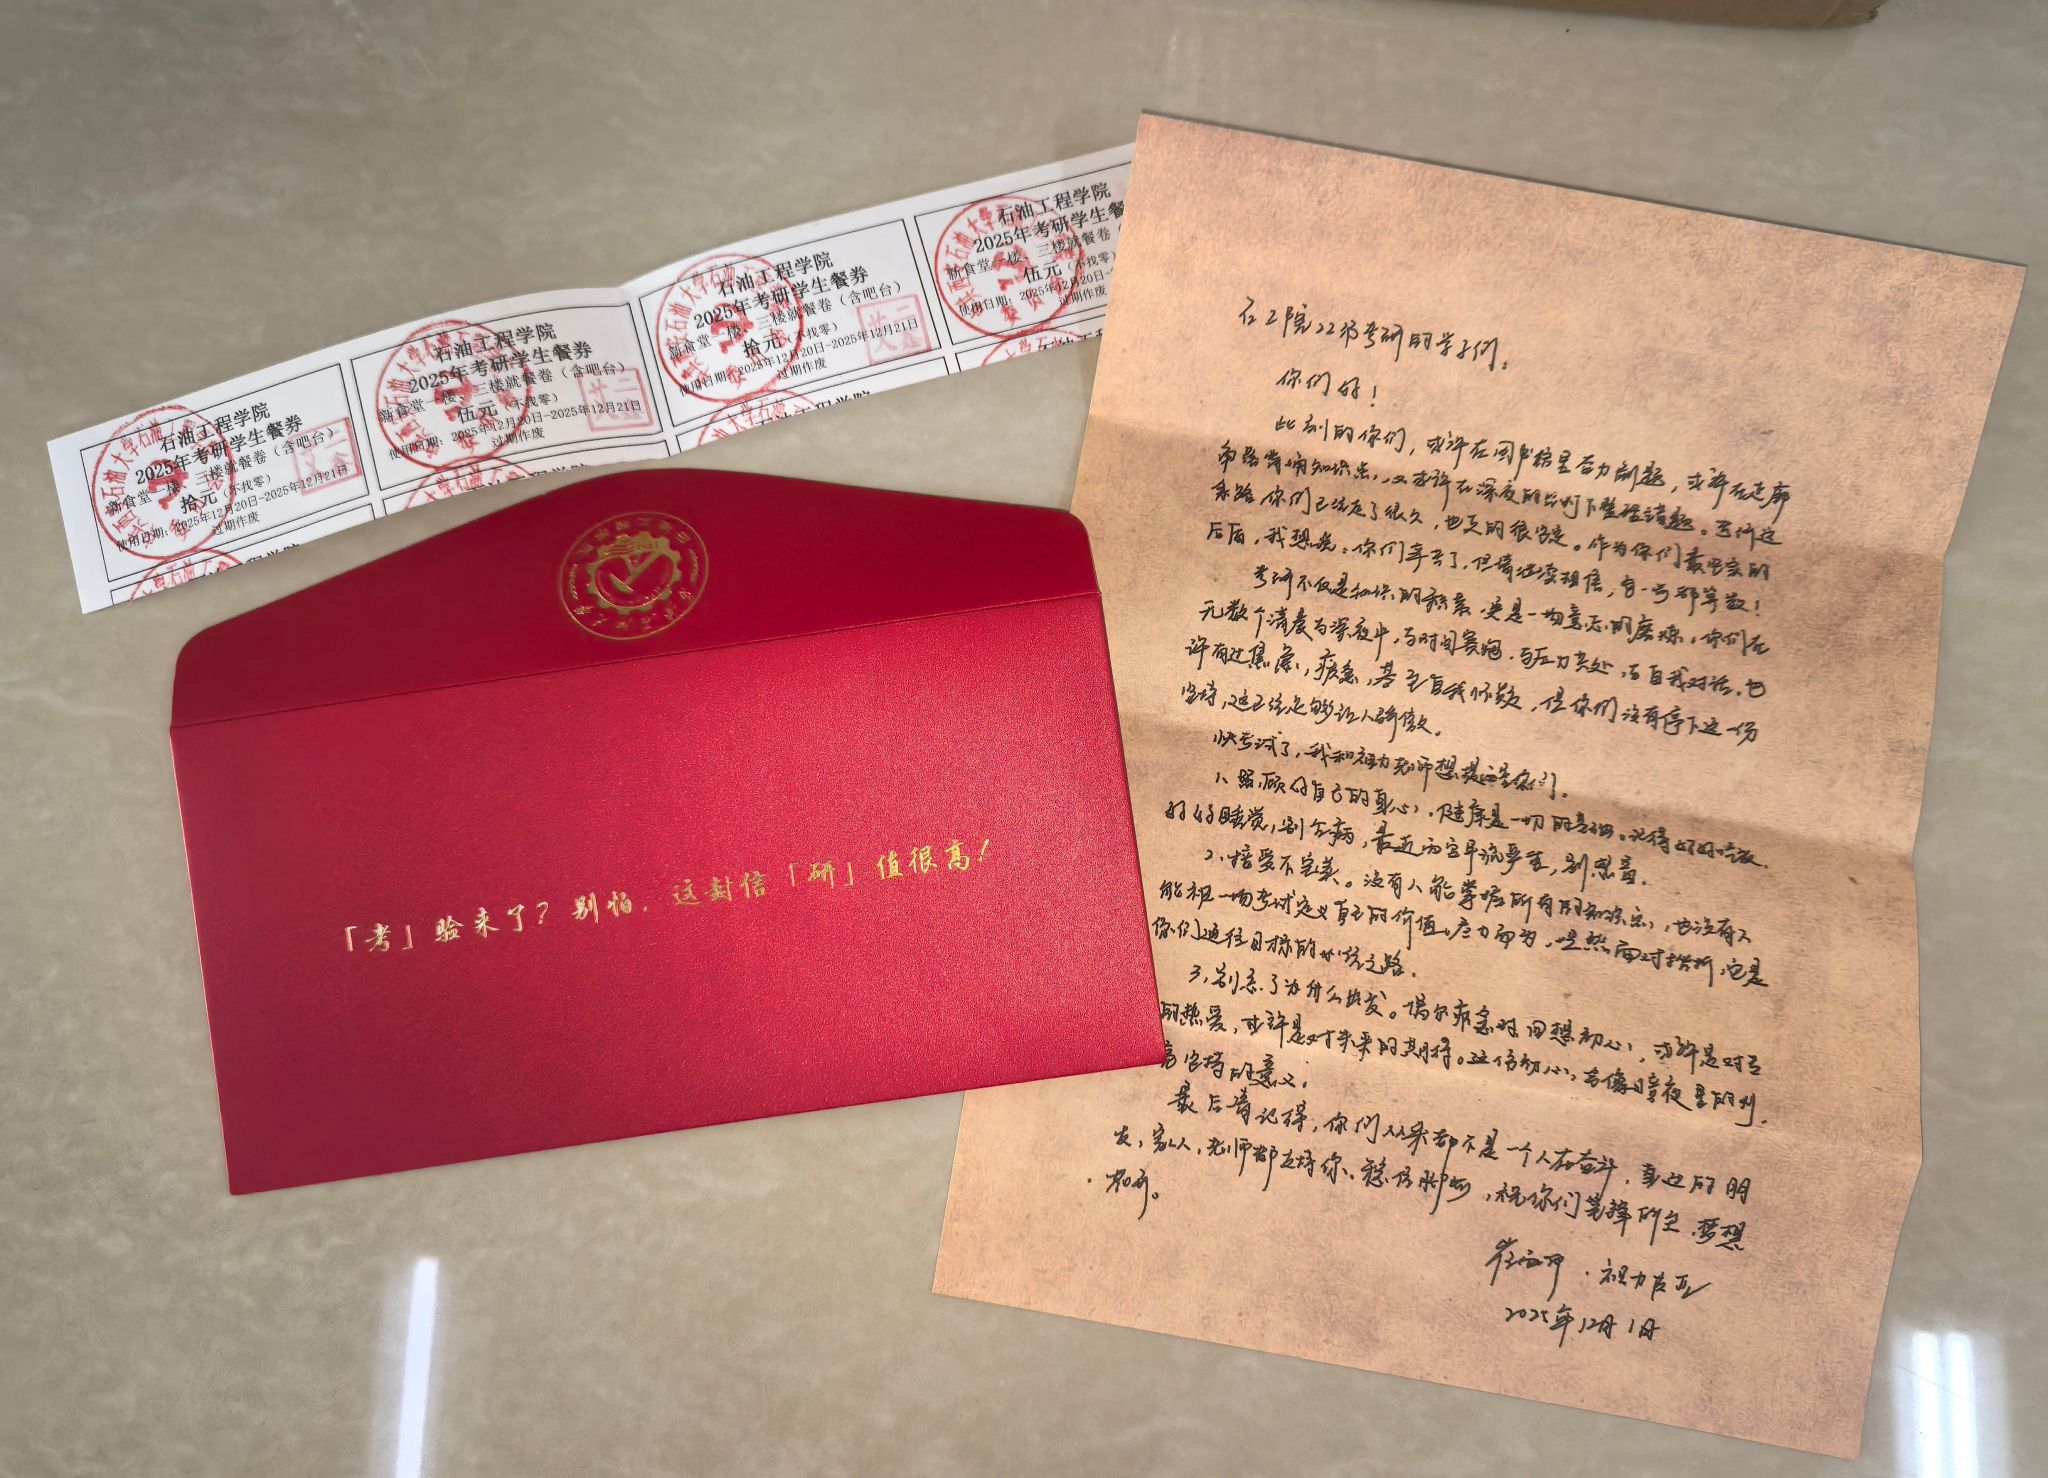 石油工程学院
2025年考研学生餐券
新食堂一楼、三楼就餐卷（含吧台）
拾元（不找零）
使用日期：2025年12月20日-2025年12月21日
过期作废
石油工程学院
2025年考研学生餐券
新食堂一楼、三楼就餐卷（含吧台）
伍元（不找零）
使用日期：2025年12月20日-2025年12月21日
过期作废
石油工程学院
2025年考研学生餐券
新食堂一楼、三楼就餐卷（含吧台）
拾元（不找零）
使用日期：2025年12月20日-2025年12月21日
过期作废
石油工程学院
2025年考研学生餐
新食堂一楼、三楼就餐卷
伍元（不找零
使用日期：2025年12月20日-
过期作废
「考」验来了？别怕，这封信「研」值很高！
石工院22级考研的学子们，
你们好！
此刻的你们，或许在图书馆里奋力刷题，或许在走廊
背诵知识点，又或许在深夜的台灯下整理错题。考研这
条路你们已经走了很久，也真的很坚定。作为你们最坚实的
后盾，我想说：你们辛苦了，但请继续相信，每一步都算数！
考研不仅是知识的积累，更是一场意志的磨炼。你们在
无数个清晨与深夜中，与时间赛跑，与压力共处，与自我对话。也
许有过焦虑，疲惫，甚至自我怀疑，但你们没有停下这一份
坚持，这已经足够让人骄傲。
快考试了，我和祖力老师想提醒你们。
1、照顾好自己的身心，健康是一切的基础。记得好好吃饭，
好好睡觉，别生病，最近西安甲流严重，别感冒。
2、接受不完美。没有人能掌握所有的知识点，也没有人
能被一场考试定义自己的价值。尽力而为，坦然面对挫折，它是
你们通往目标的必经之路。
3、别忘了为什么出发。偶尔疲惫时回想初心，或许是对专
的热爱，或许是对未来的期待。这份初心，会像暗夜里的灯，
坚持的意义。
最后请记得，你们从来都不是一个人在奋斗，身边的朋
友，家人，老师都支持你、稳住脚步，祝你们笔锋所至，梦想
如所。
2025年12月1日